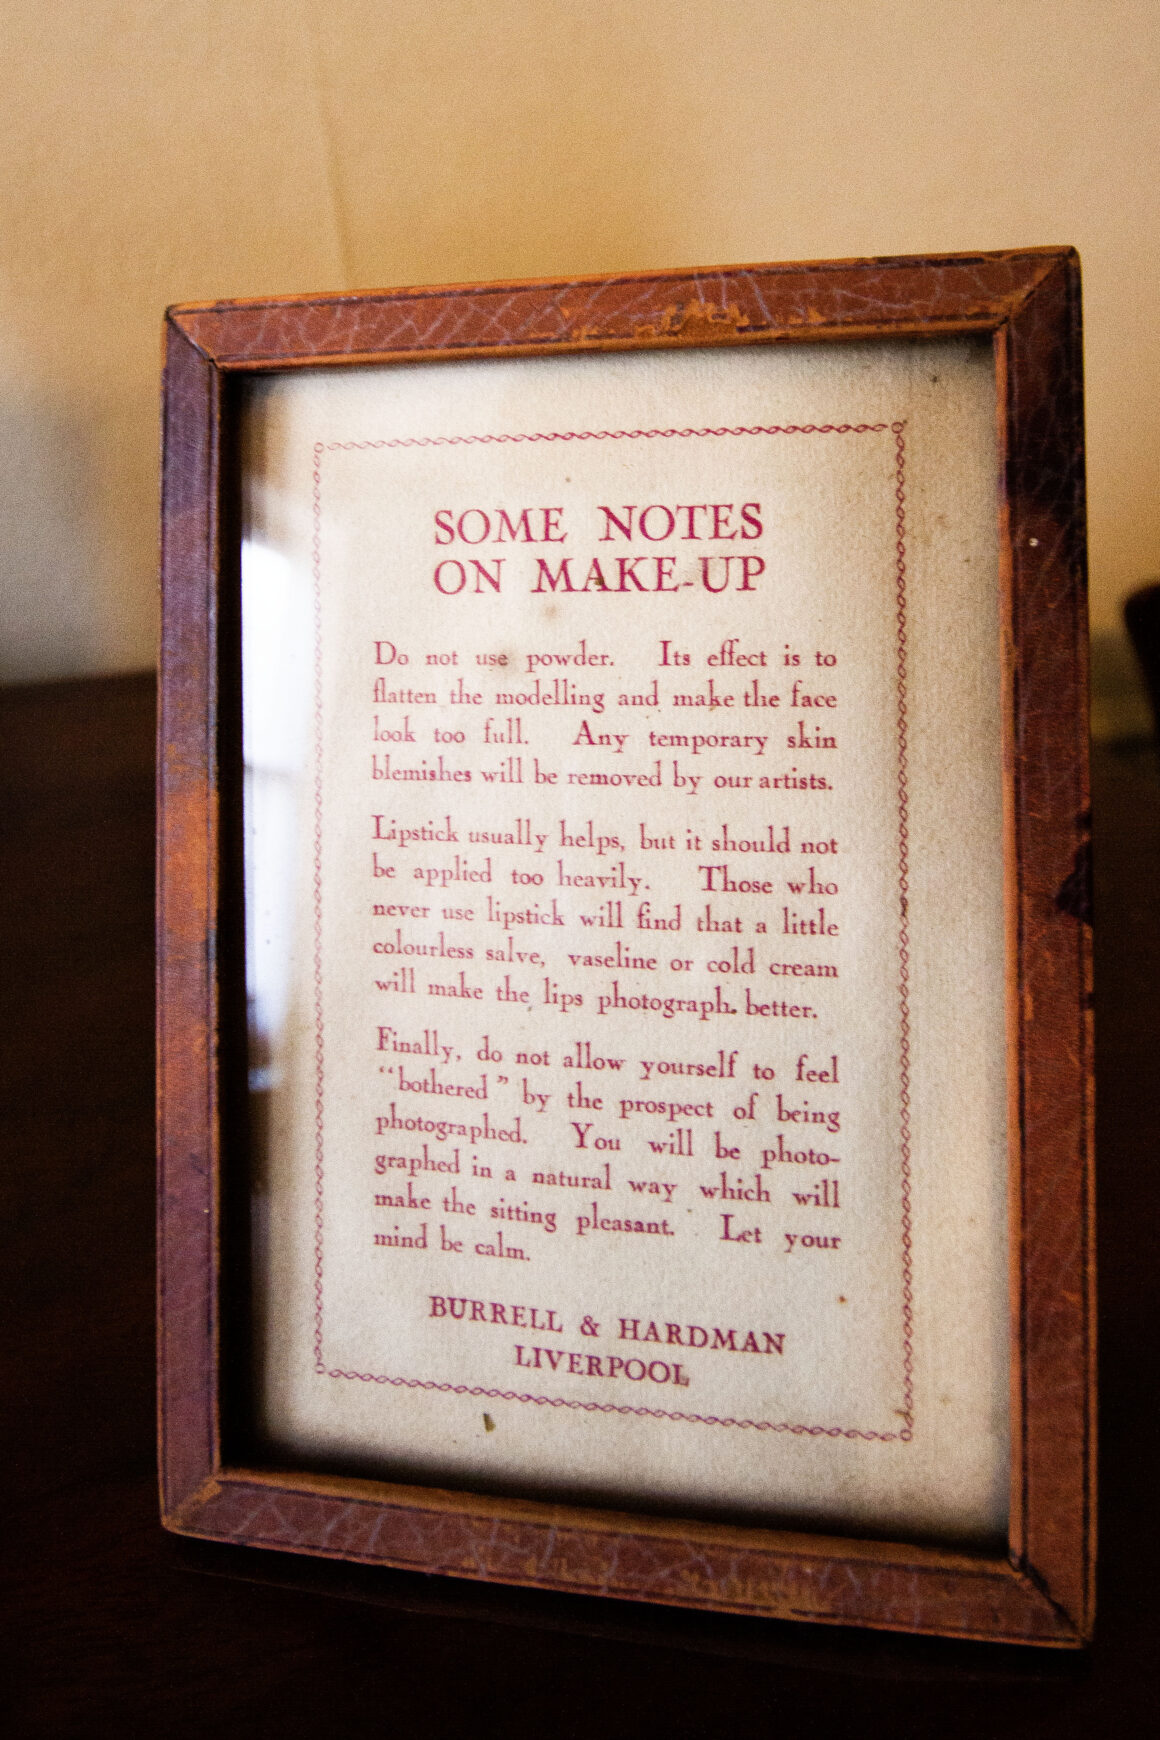 SOME NOTES
ON MAKE-UP
Do not use powder. Its effect is to
flatten the modelling and make the face
look too full. Any temporary skin
blemishes will be removed by our artists.
Lipstick usually helps, but it should not
be applied too heavily. Those who
never use lipstick will find that a little
colourless salve, vaseline or cold cream
will make the lips photograph better.
Finally, do not allow yourself to feel
“bothered” by the prospect of being
photographed. You will be photo-
graphed in a natural way which will
make the sitting pleasant. Let your
mind be calm.
BURRELL & HARDMAN
LIVERPOOL